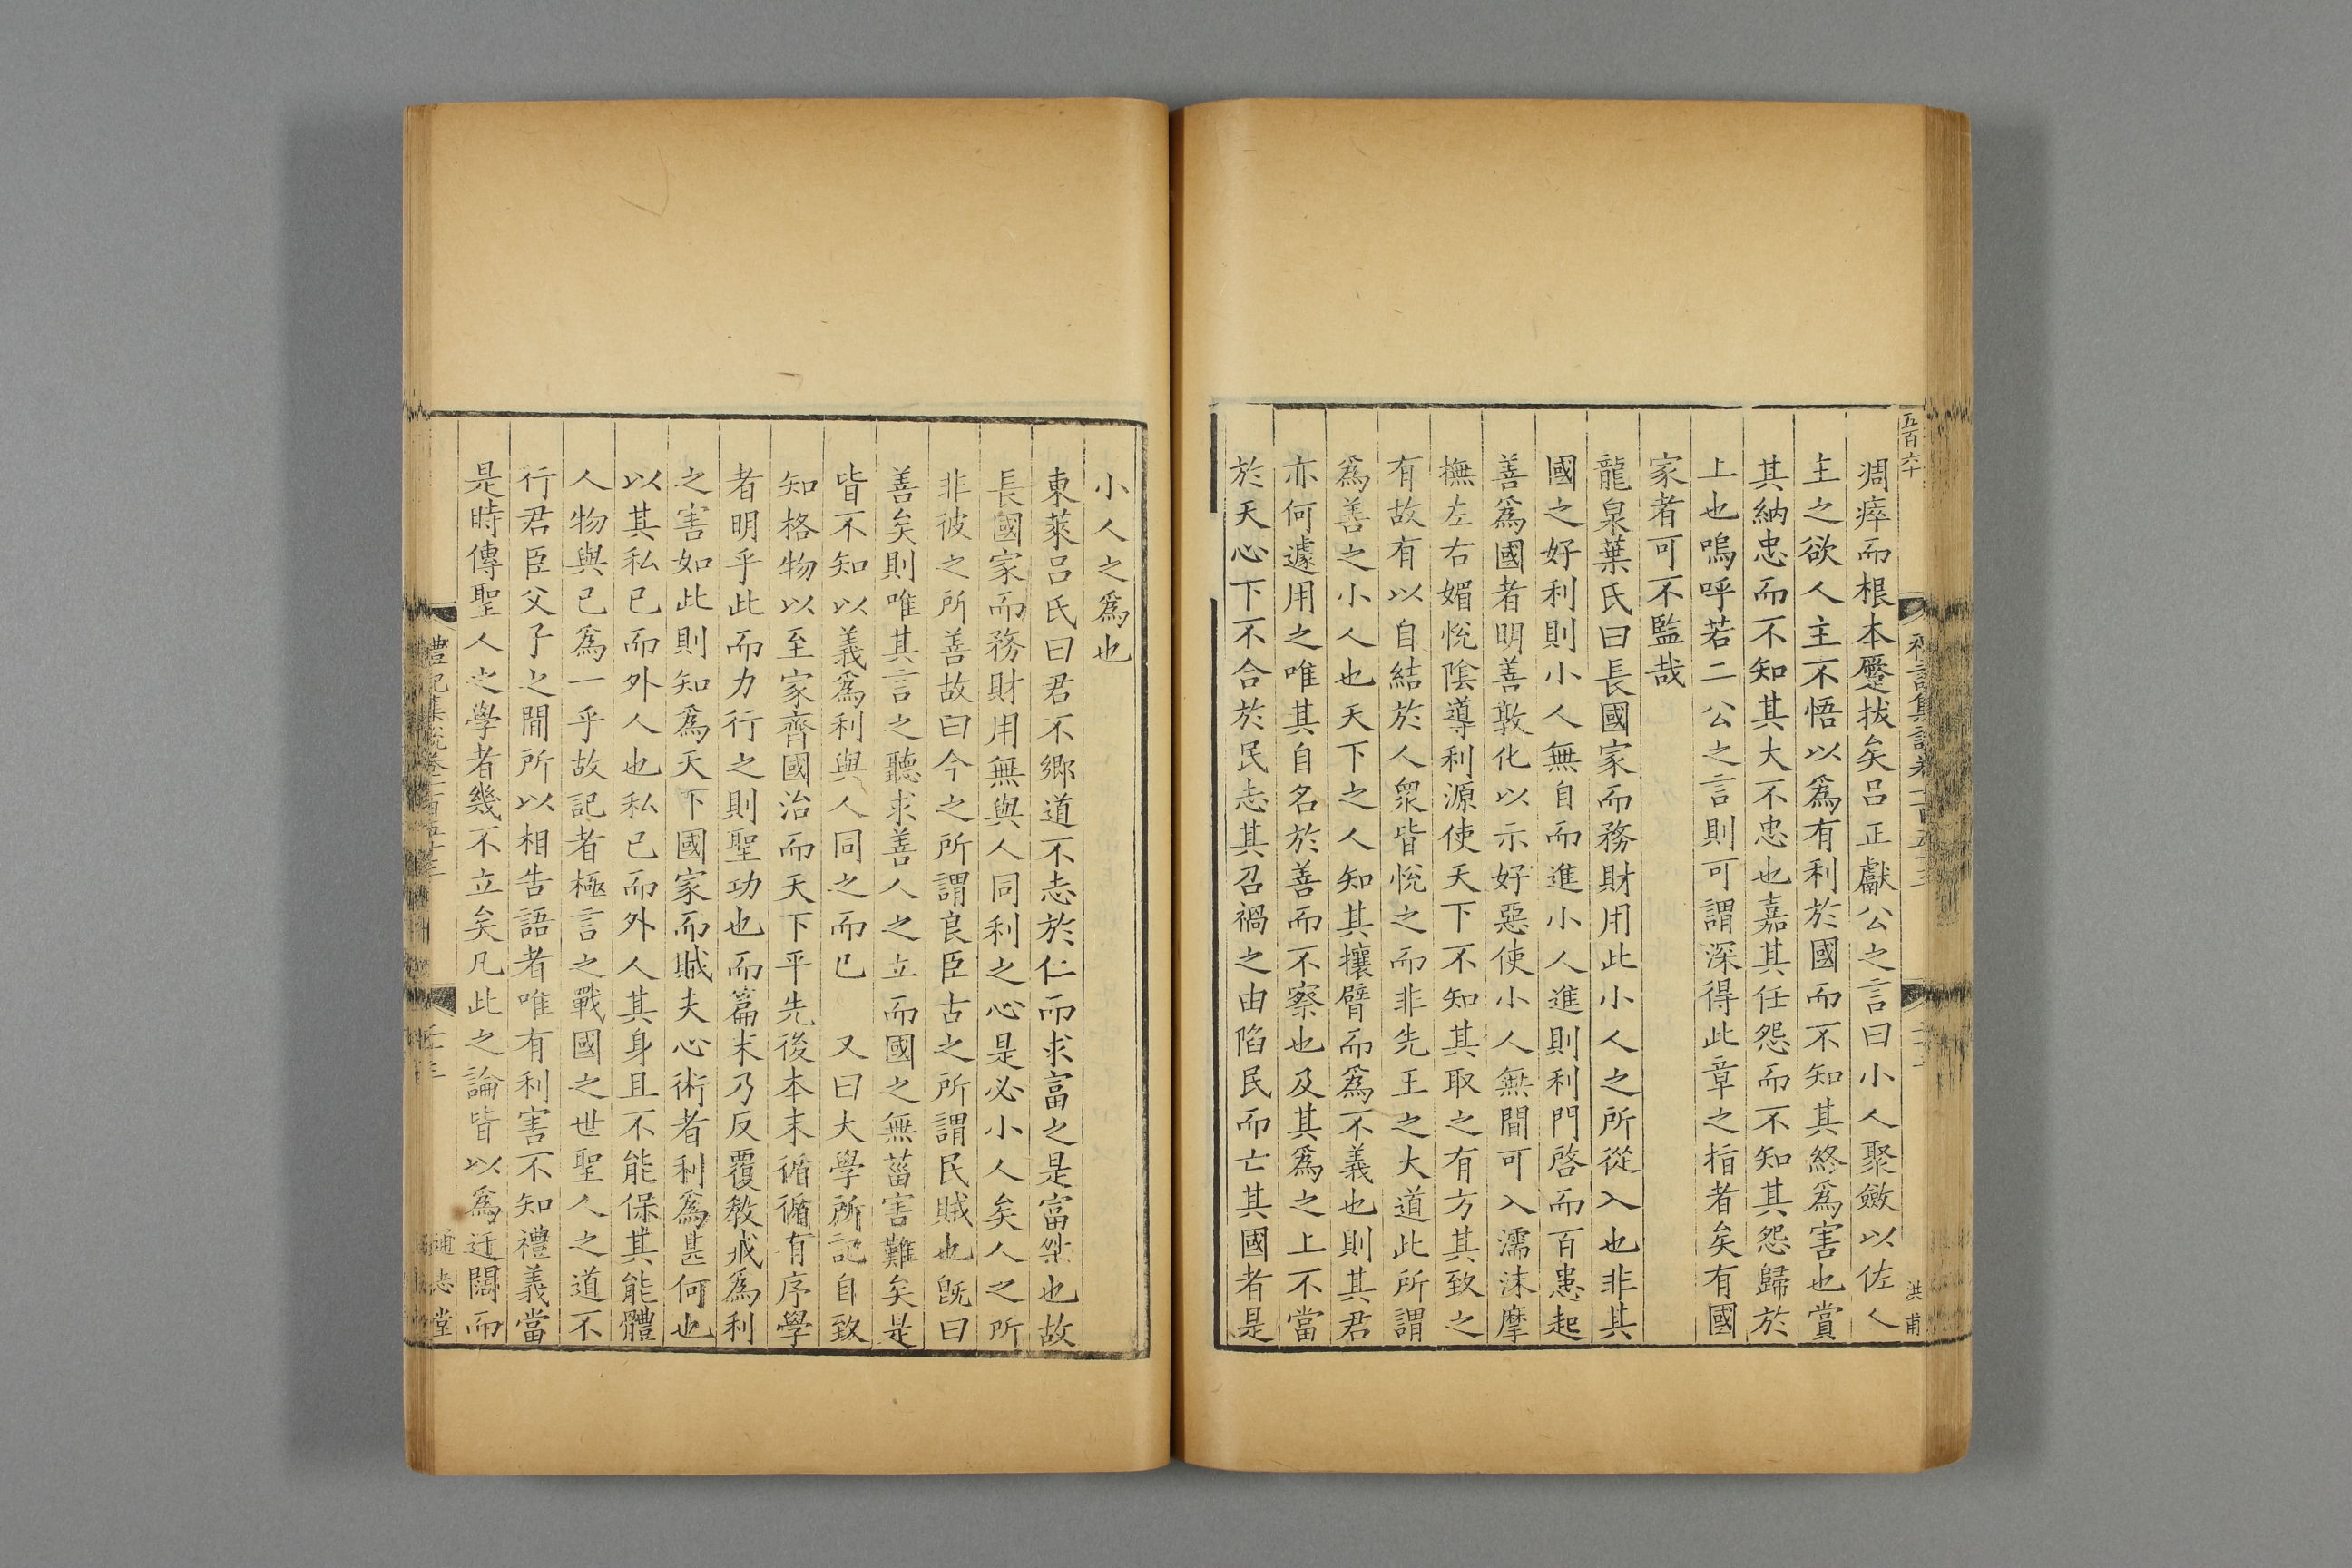 五百六十
洪甫
凋瘁而根本蹷拔矣呂正獻公之言曰小人聚斂以佐人
主之欲人主不悟以爲有利於國而不知其終爲害也賞
其納忠而不知其大不忠也嘉其任怨而不知其怨歸於
上也嗚呼若二公之言則可謂深得此章之指者矣有國
家者可不監哉
龍泉葉氏曰長國家而務財用此小人之所從入也非其
國之好利則小人無自而進小人進則利門啓而百患起
善爲國者明善敦化以示好惡使小人無間可入濡沫摩
撫左右媚悅隂導利源使天下不知其取之有方其致之
有故有以自結於人衆皆悅之而非先王之大道此所謂
爲善之小人也天下之人知其攘臂而爲不義也則其君
亦何遽用之唯其自名於善而不察也及其爲之上不當
於天心下不合於民志其召禍之由陷民而亡其國者是
小人之爲也
東萊呂氏曰君不鄉道不志於仁而求富之是富桀也故
長國家而務財用無與人同利之心是必小人矣人之所
非彼之所善故曰今之所謂良臣古之所謂民賊也旣曰
善矣則唯其言之聽求善人之立而國之無菑害難矣是
皆不知以義爲利與人同之而已 又曰大學所記自致
知格物以至家齊國治而天下平先後本末循循有序學
者明乎此而力行之則聖功也而篇末乃反覆敎戒爲利
之害如此則知爲天下國家而賊夫心術者利爲甚何也
以其私己而外人也私己而外人其身且不能保其能體
人物與己爲一乎故記者極言之戰國之世聖人之道不
行君臣父子之間所以相告語者唯有利害不知禮義當
是時傳聖人之學者幾不立矣凡此之論皆以爲迂闊而
禮記集說卷一百五十三
通志堂